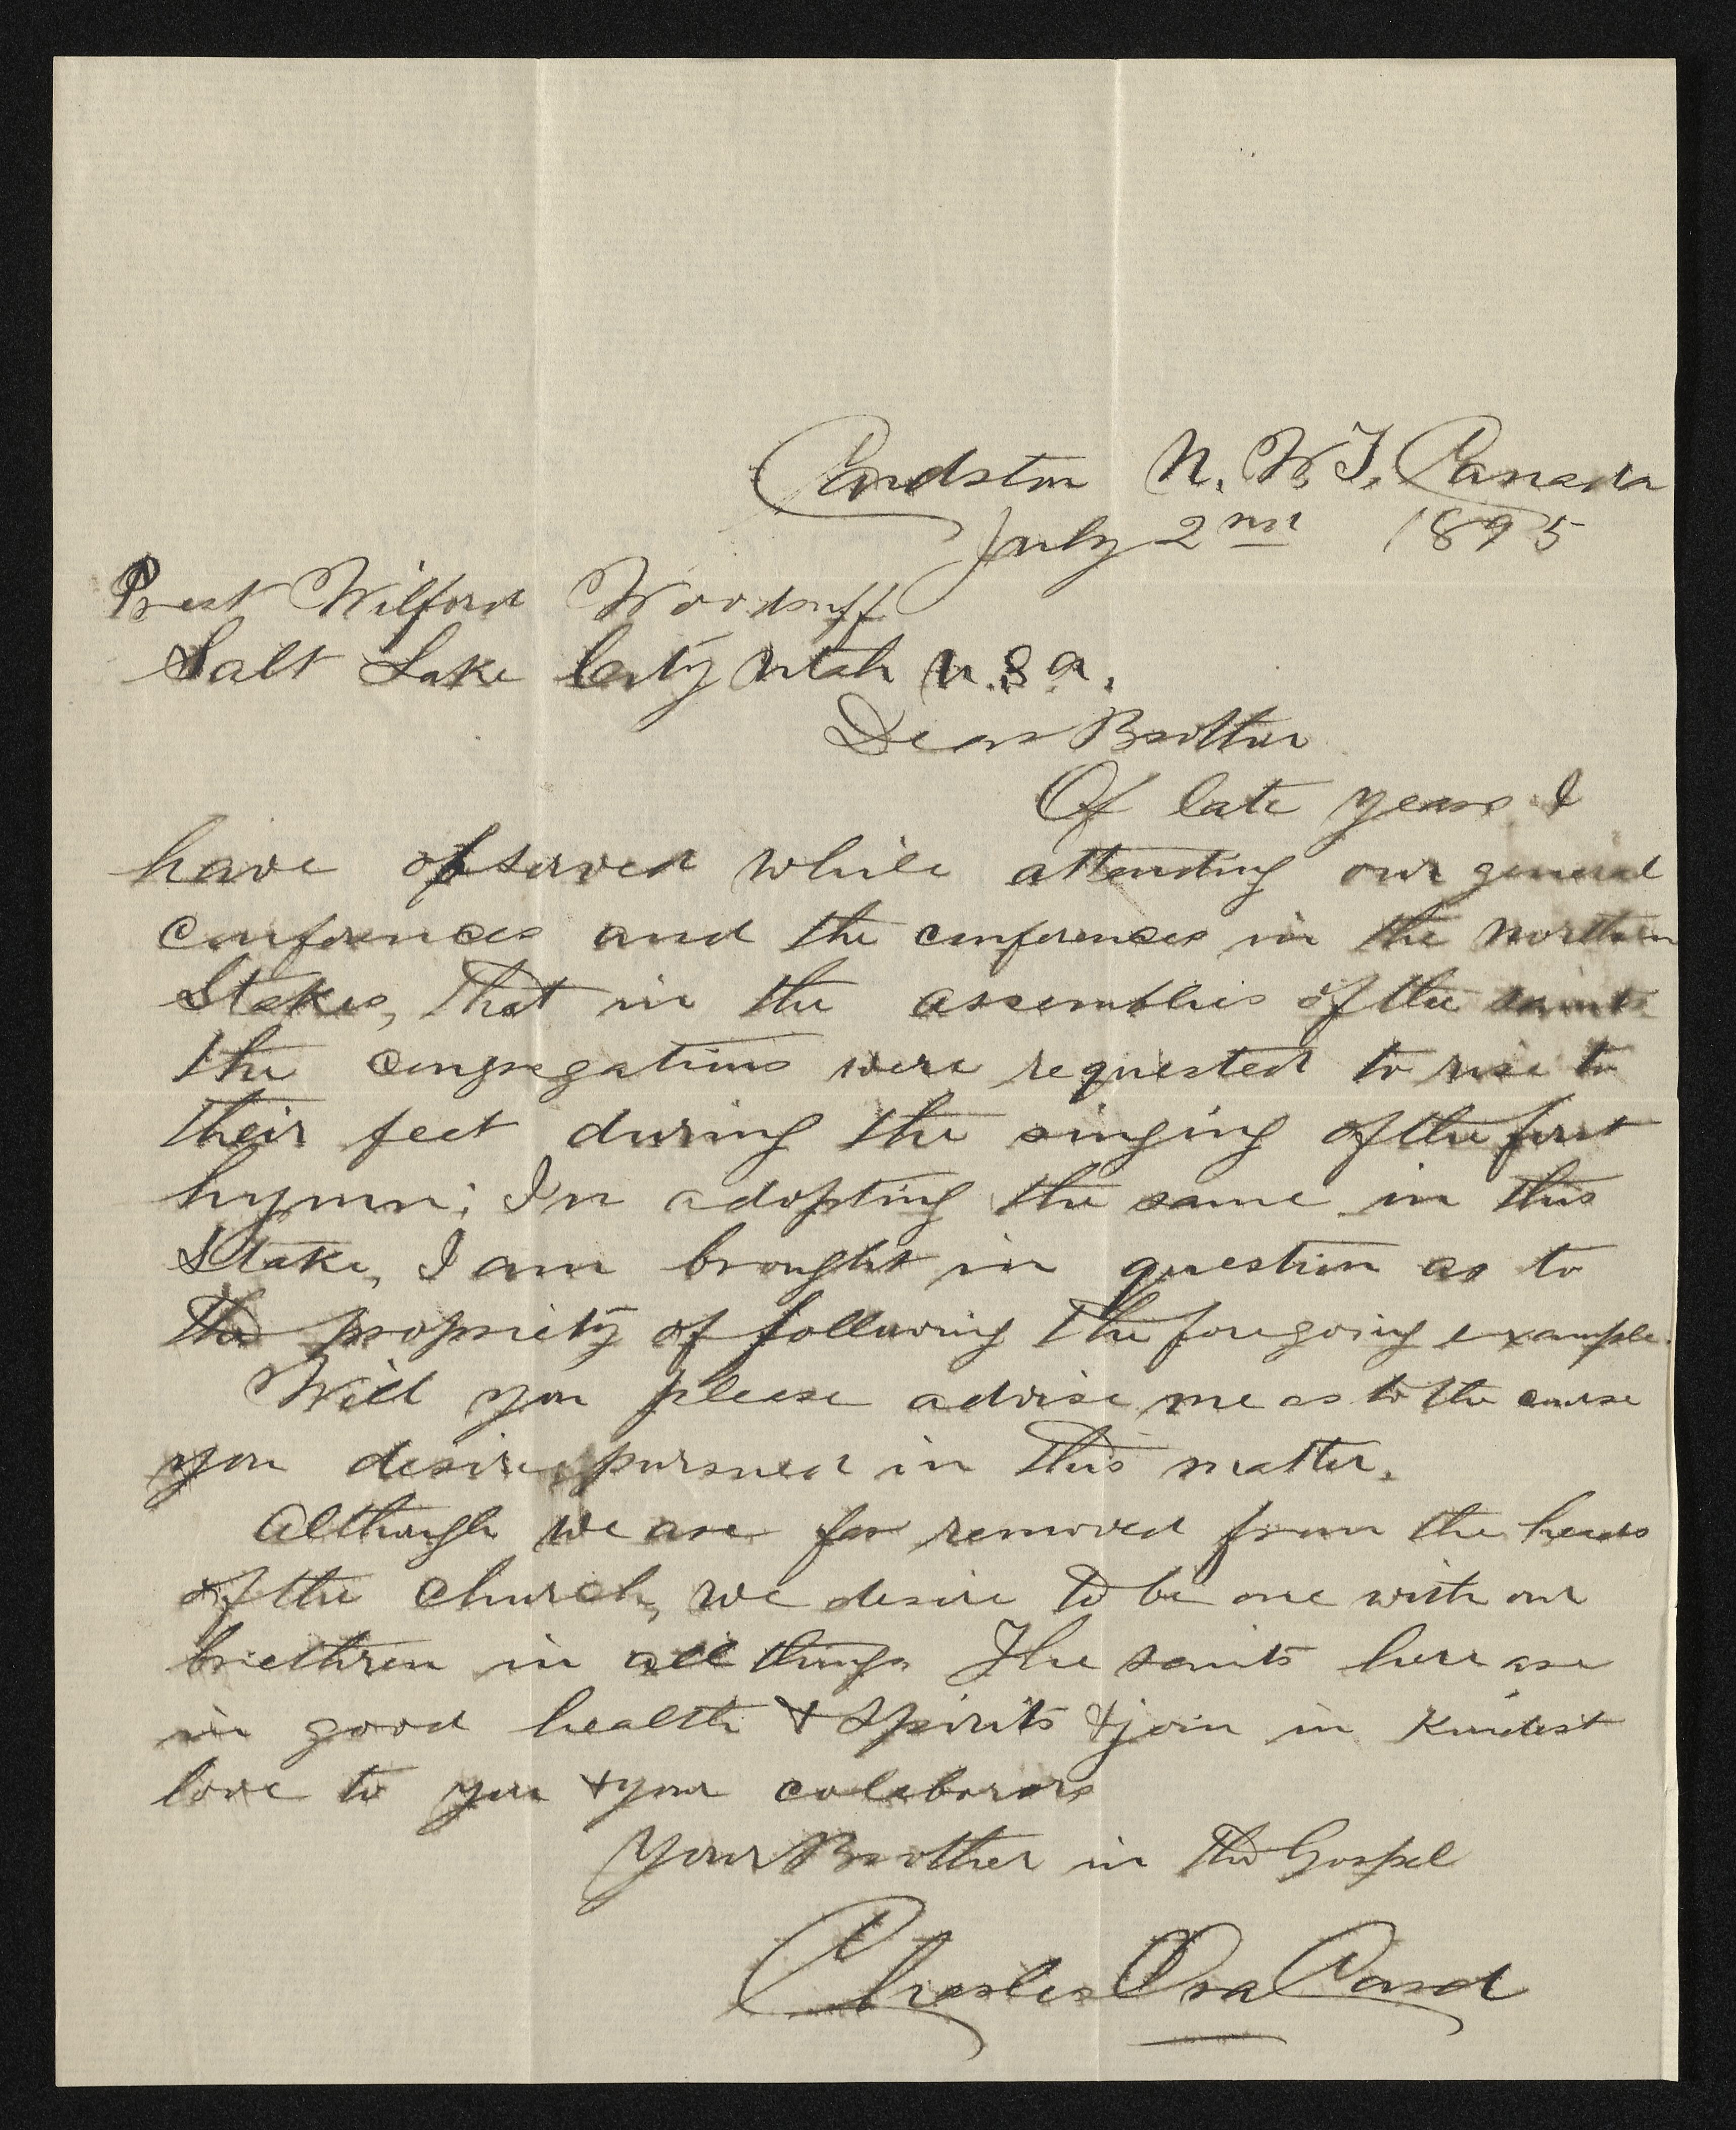 Cardston N. W. T. Canada
July 2nd 1895
Prest Wilford Woodruff
Salt Lake City Utah U.S.A.
Dear Brother
Of late years I
have observed while attending our general
conferences and the conferences in the Northern
Stakes, that in the assemblies of the saints
the congregations were requested to rise to
their feet during the singing of the first
hymn; In adopting the same in this
Stake, I am brought in question as to
the propriety of following the foregoing example.
Will you please advise me as to the course
you desire pursued in this matter.
Although we are far removed from the heads
of the church, we desire to be one with our
briethren in all things The saints here are
in good health & spirits & join in kindest
love to you & your colaborors
Your Brother in the Gospel
Charles Ora Card